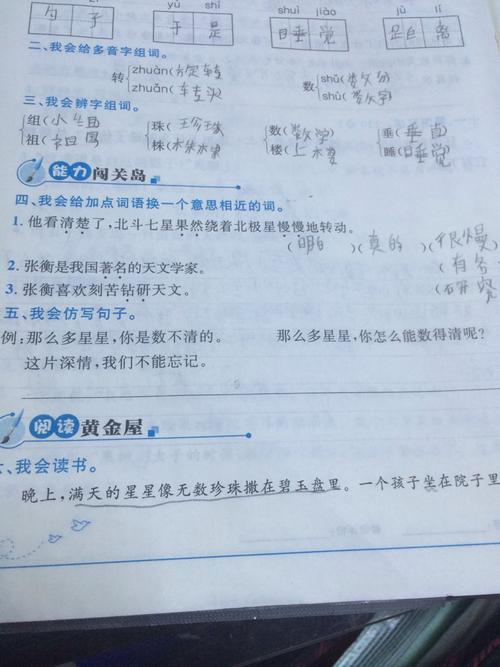 yǔ shì shuì jiào jù lí
句子 于是 睡觉 距离
二、我会给多音字组词。
转 zhuàn(旋转) 数 shǔ(数分)
zhuǎn(转头) shù(数字)
三、我会辨字组词。
组(小组) 珠(珍珠) 数(数学) 垂(垂直)
祖(祖国) 株(株) 楼(上楼) 睡(睡觉)
能力闯关岛
四、我会给加点词语换一个意思相近的词。
1. 他看清楚了,北斗七星果然绕着北极星慢慢地转动。
(明白)(真的)(很慢)
2. 张衡是我国著名的天文学家。 (有名)
3. 张衡喜欢刻苦钻研天文。 (研究)
五、我会仿写句子。
例:那么多星星,你是数不清的。 那么多星星,你怎么能数得清呢?
这片深情,我们不能忘记。
阅读黄金屋
六、我会读书。
晚上,满天的星星像无数珍珠撒在碧玉盘里。一个孩子坐在院子里